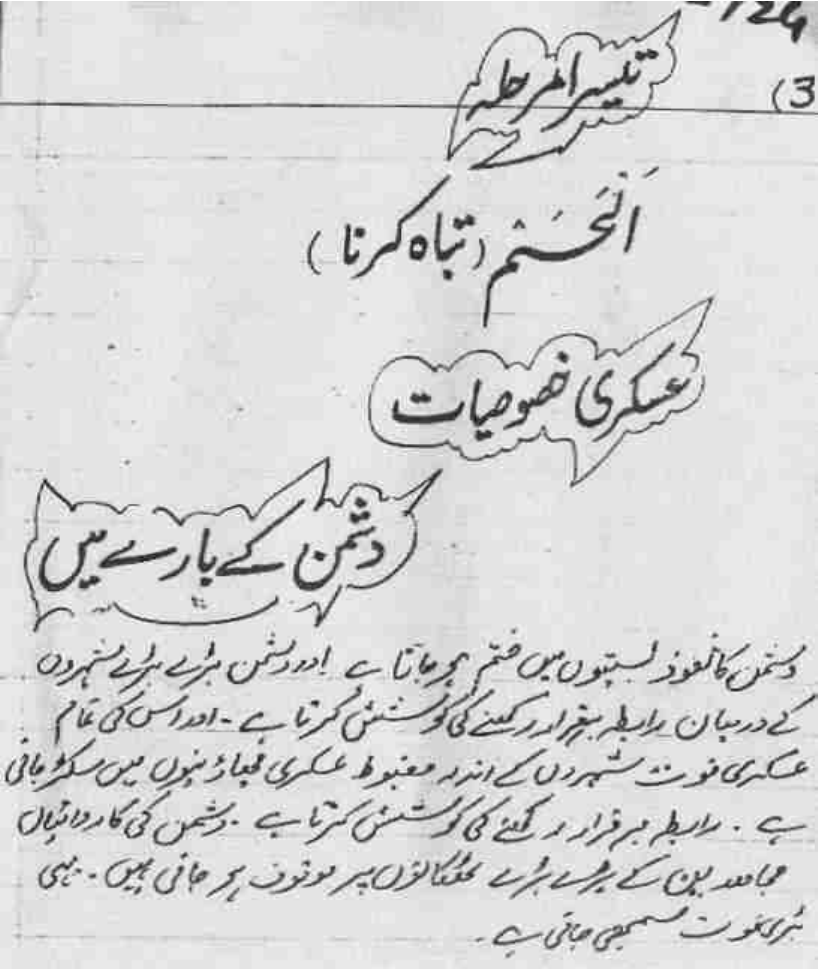 /24
(3
تیسرا مرحلہ
اَلْحَسَم (تباہ کرنا)
عسکری خصوصیات
دشمن کے بارے میں
دشمن کا نفوذ بستیوں میں ختم ہو جاتا ہے اور دشمن بڑے بڑے شہروں
کے درمیان رابطہ برقرار رکھنے کی کوشش کرتا ہے ۔ اور اس کی تمام
عسکری قوت شہروں کے اندر مضبوط عسکری چھاؤنیوں میں سکڑ جاتی
ہے ۔ رابطہ برقرار رکھنے کی کوشش کرتا ہے ۔ دشمن کی کاروائیاں
مجاھدین کے بڑے بڑے ٹھکانوں پر موقوف ہو جاتی ہیں ۔ یہی
بڑی قوت سمجھی جاتی ہے ۔